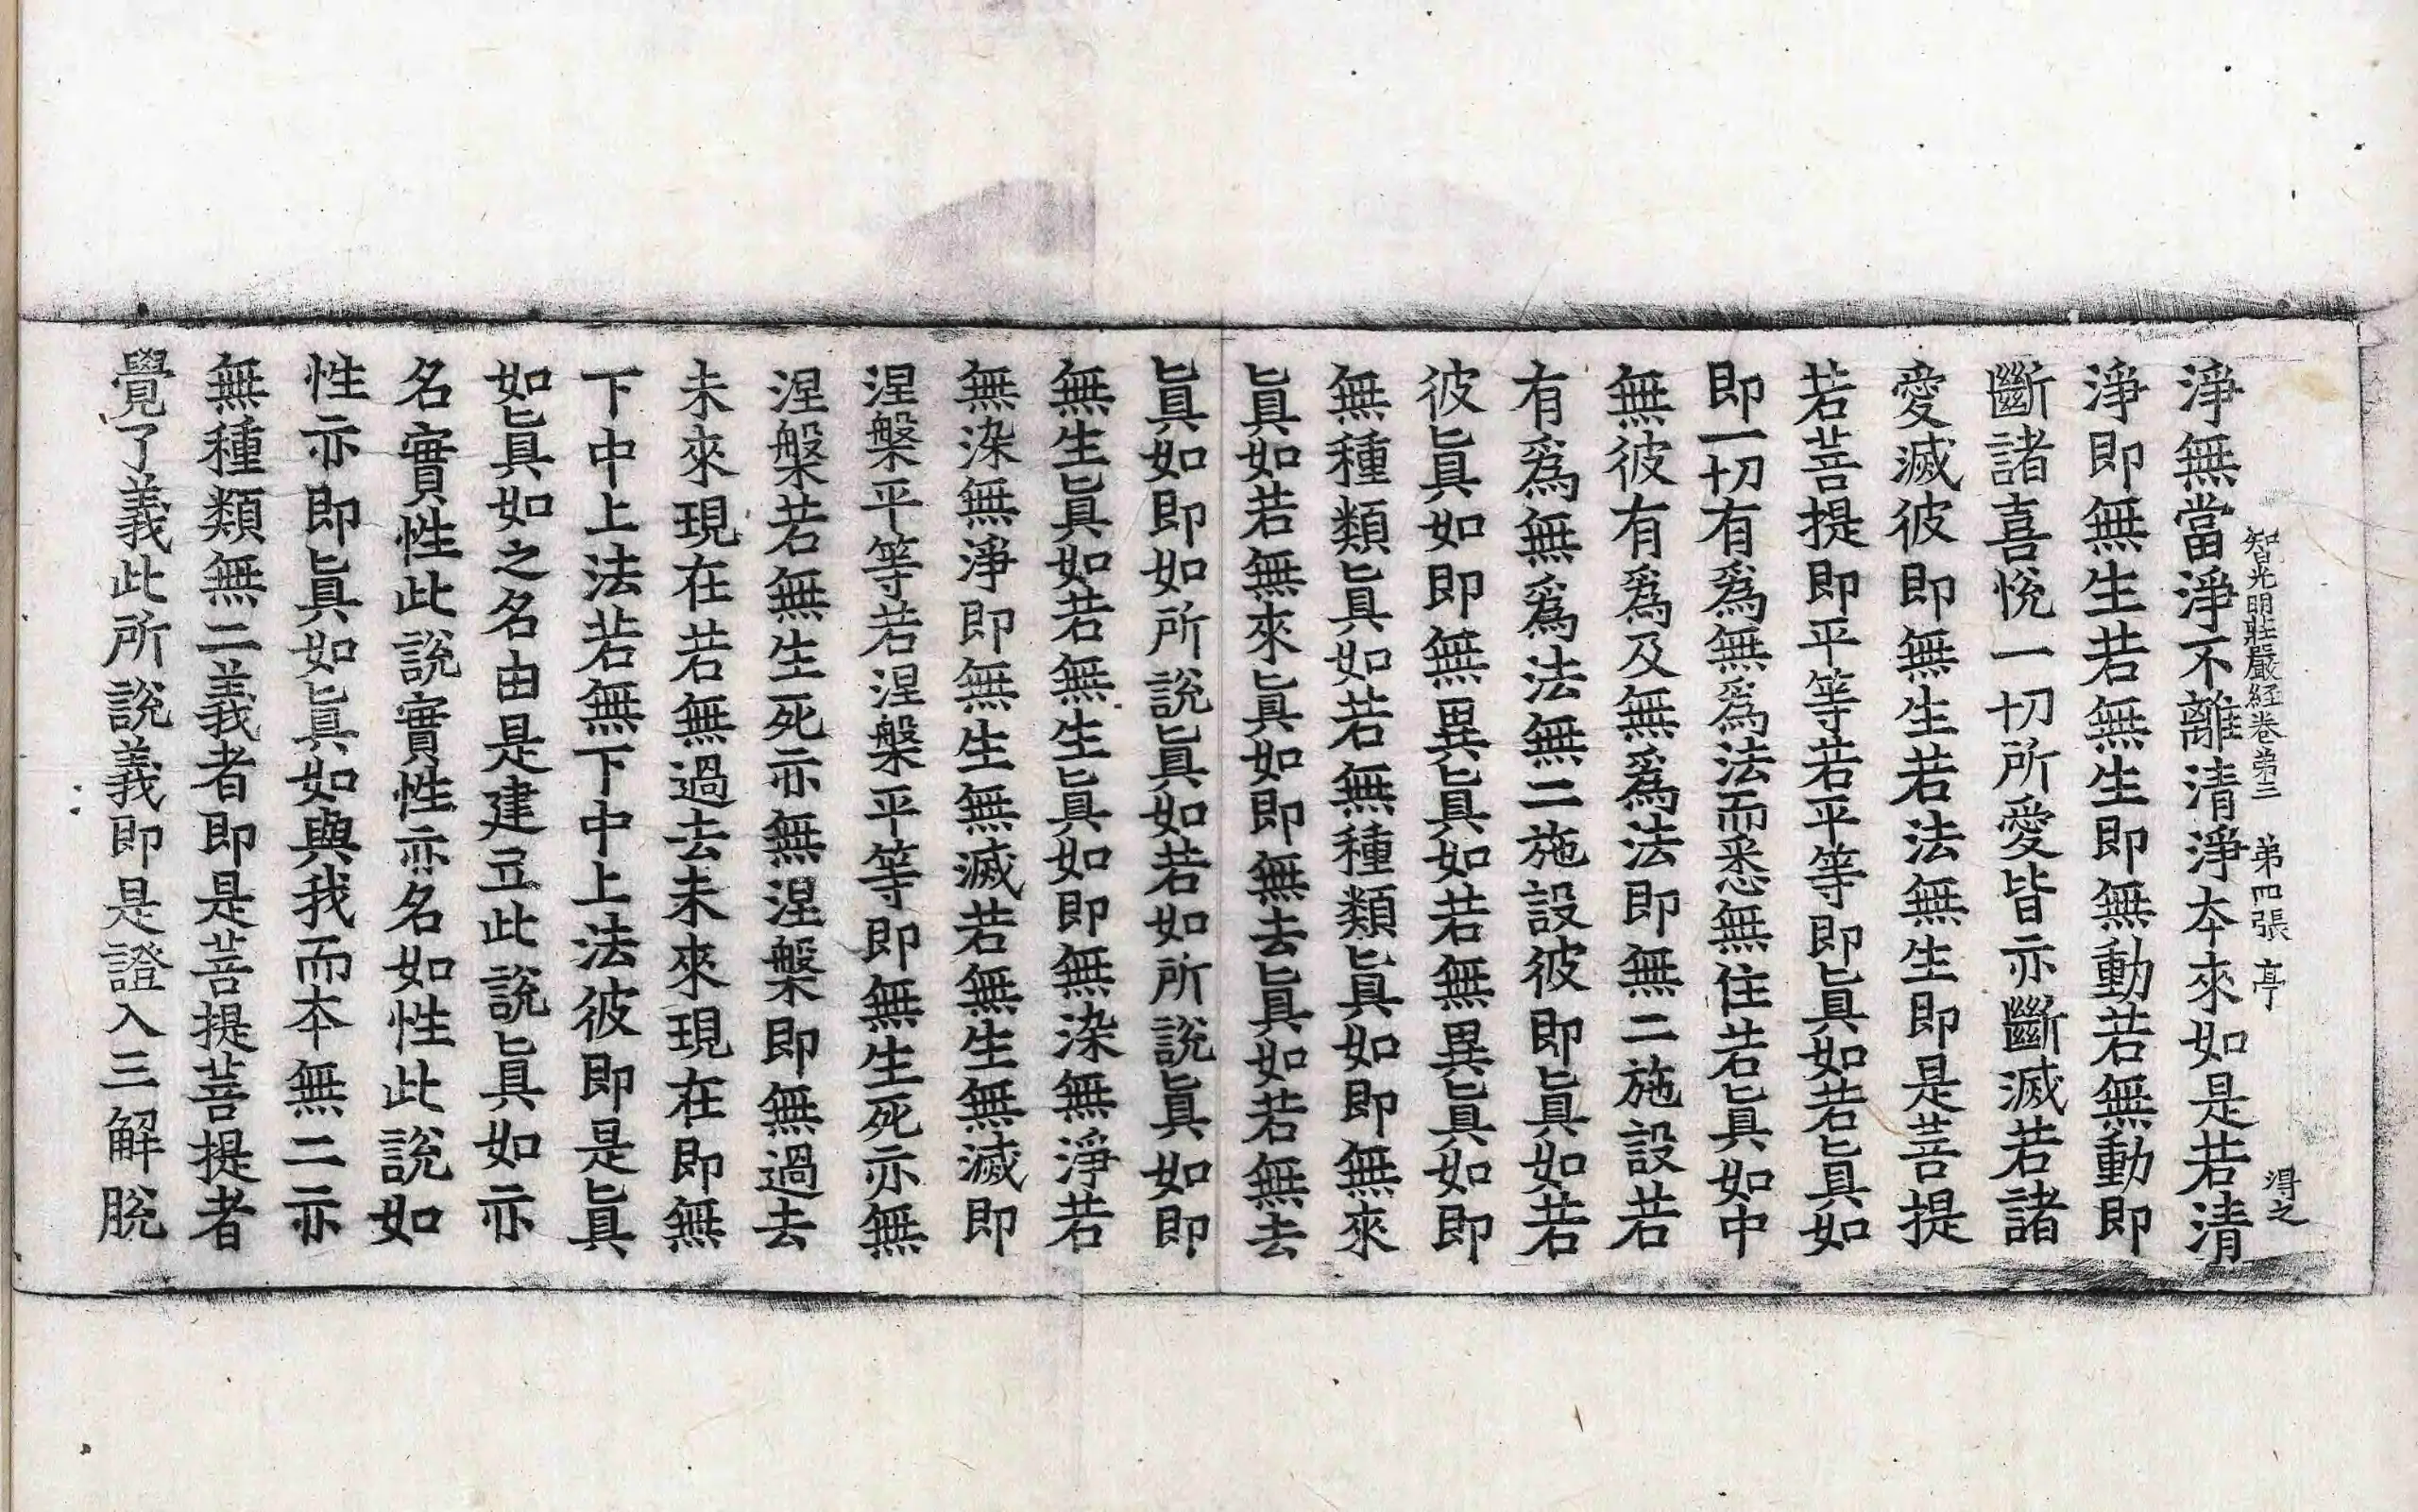 智光明莊嚴経卷第三　第四張　亭　淂之
淨無當淨不離清淨本來如是若清
淨即無生若無生即無動若無動即
斷諸喜悅一切所愛皆亦斷滅若諸
愛滅彼即無生若法無生即是菩提
若菩提即平等若平等即眞如若眞如
即一切有爲無爲法而悉無住若眞如中
無彼有爲及無爲法即無二施設若
有爲無爲法無二施設彼即眞如若
彼眞如即無異眞如若無異眞如即
無種類眞如若無種類眞如即無來
眞如若無來眞如即無去眞如若無去
眞如即如所說眞如若如所說眞如即
無生眞如若無生眞如即無染無淨若
無染無淨即無生無滅若無生無滅即
涅槃平等若涅槃平等即無生死亦無
涅槃若無生死亦無涅槃即無過去
未來現在若無過去未來現在即無
下中上法若無下中上法彼即是眞
如眞如之名由是建立此說眞如亦
名實性此說實性亦名如性此說如
性亦即眞如眞如與我而本無二亦
無種類無二義者即是菩提菩提者
覺了義此所說義即是證入三解脫